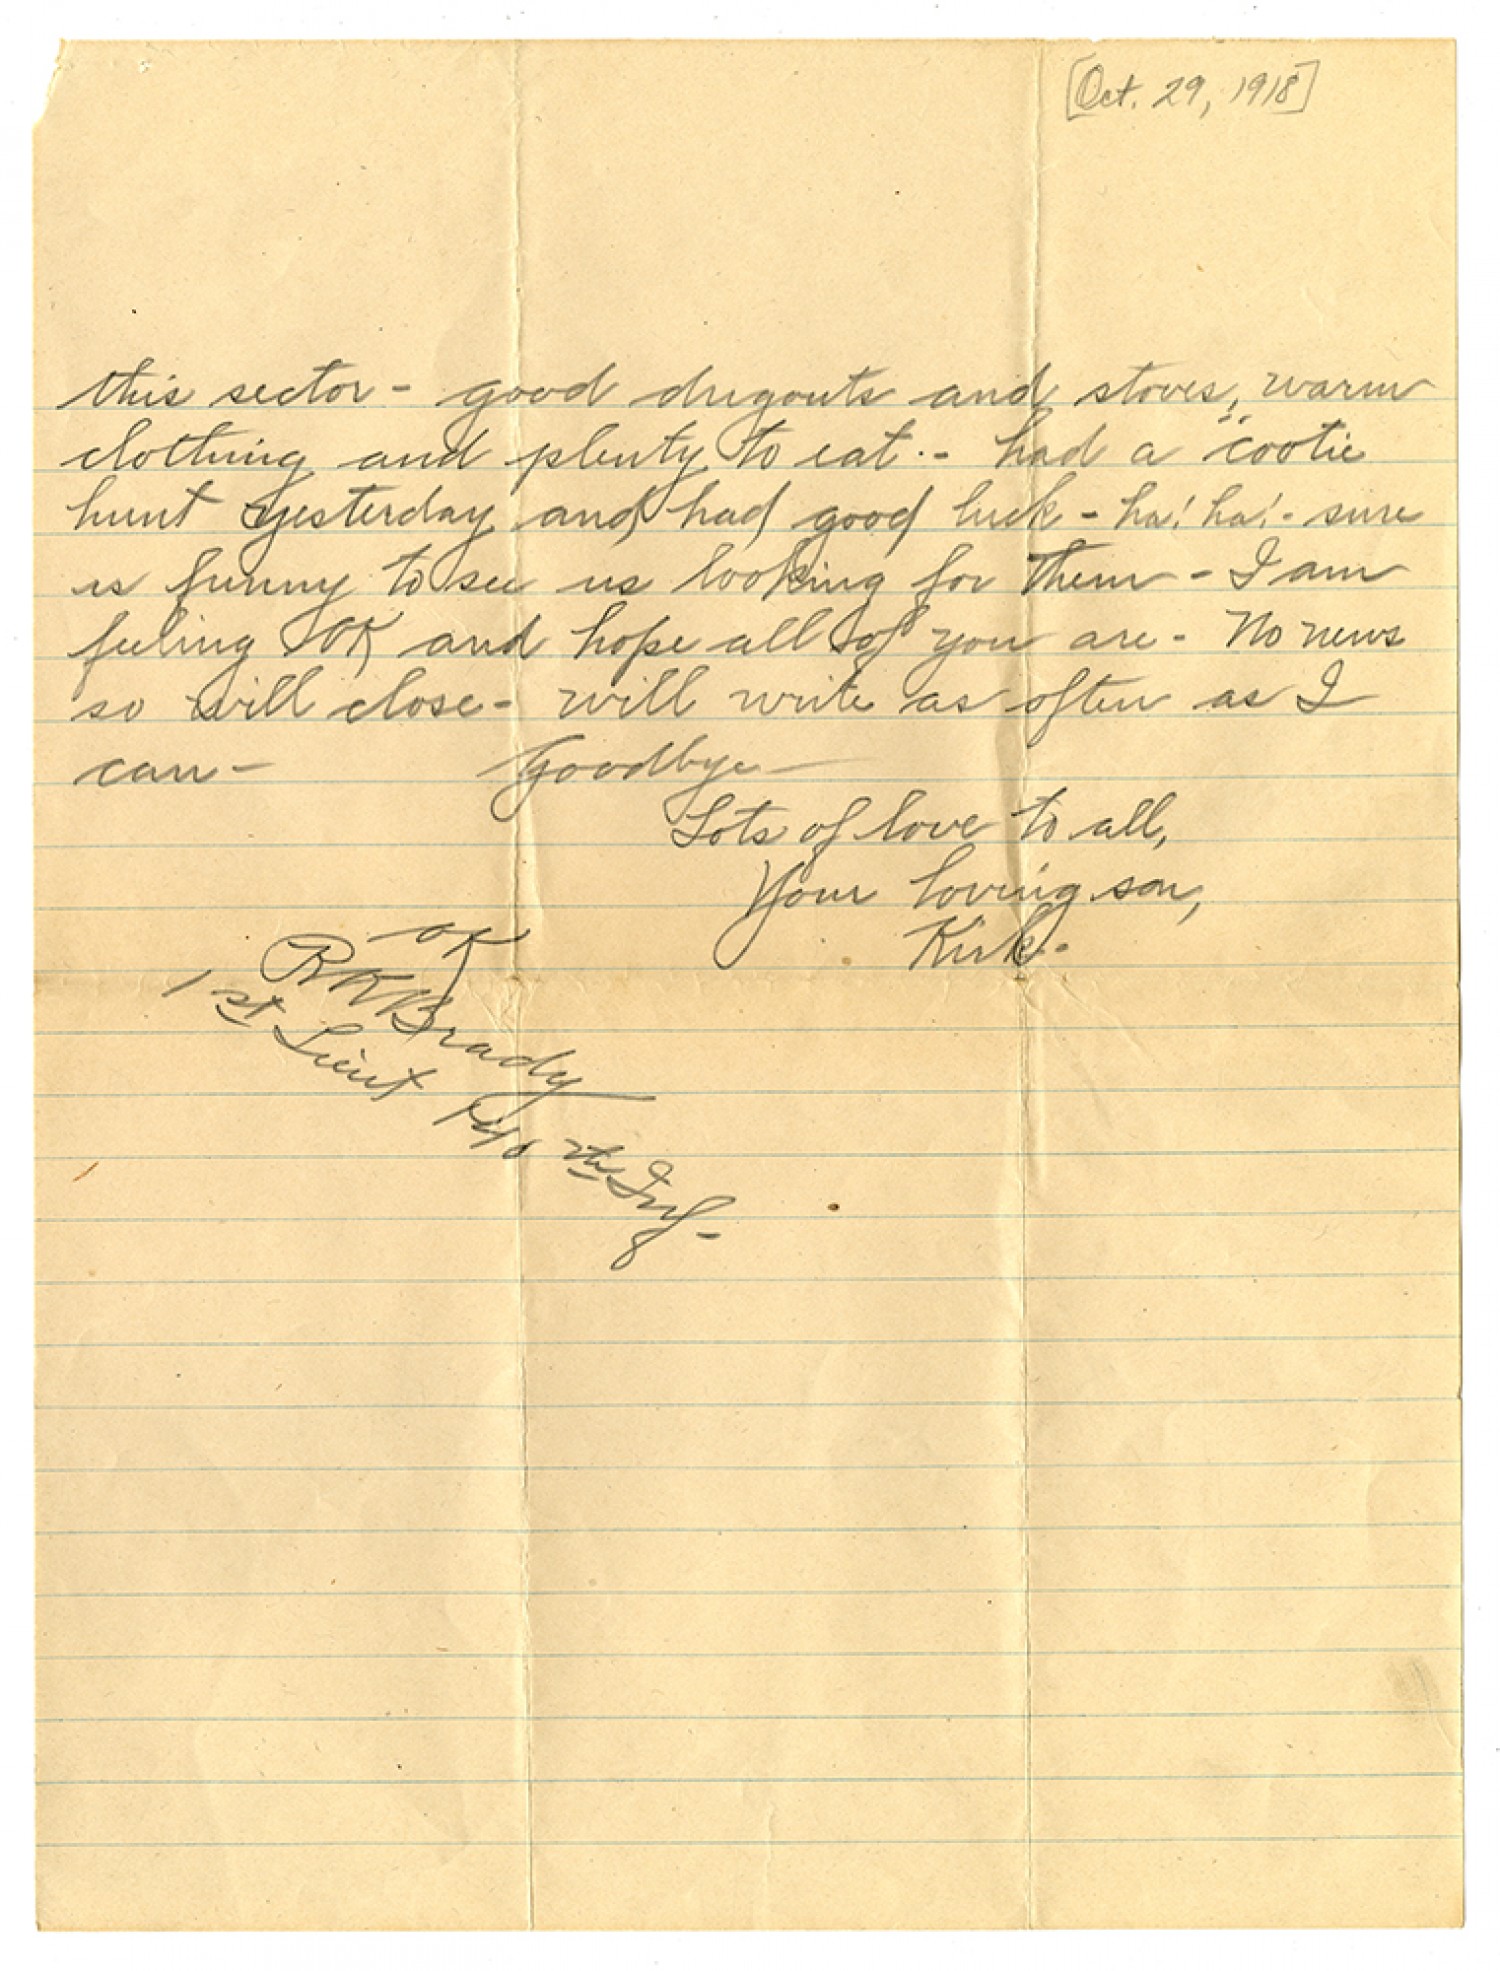 [Oct. 29, 1918]
this sector - good dugouts and stoves, warm
clothing and plenty to eat. - had a "cootie
hunt yesterday and had good luck - ha! ha! - sure
is funny to see us looking for them - I am
feeling OK and hope all of you are - No news
so will close - will write as often as I
can -      Goodbye -
Lots of love to all,
Your loving son,
Kirk -
OK
RKBrady
1st Lieut 140th Inf -